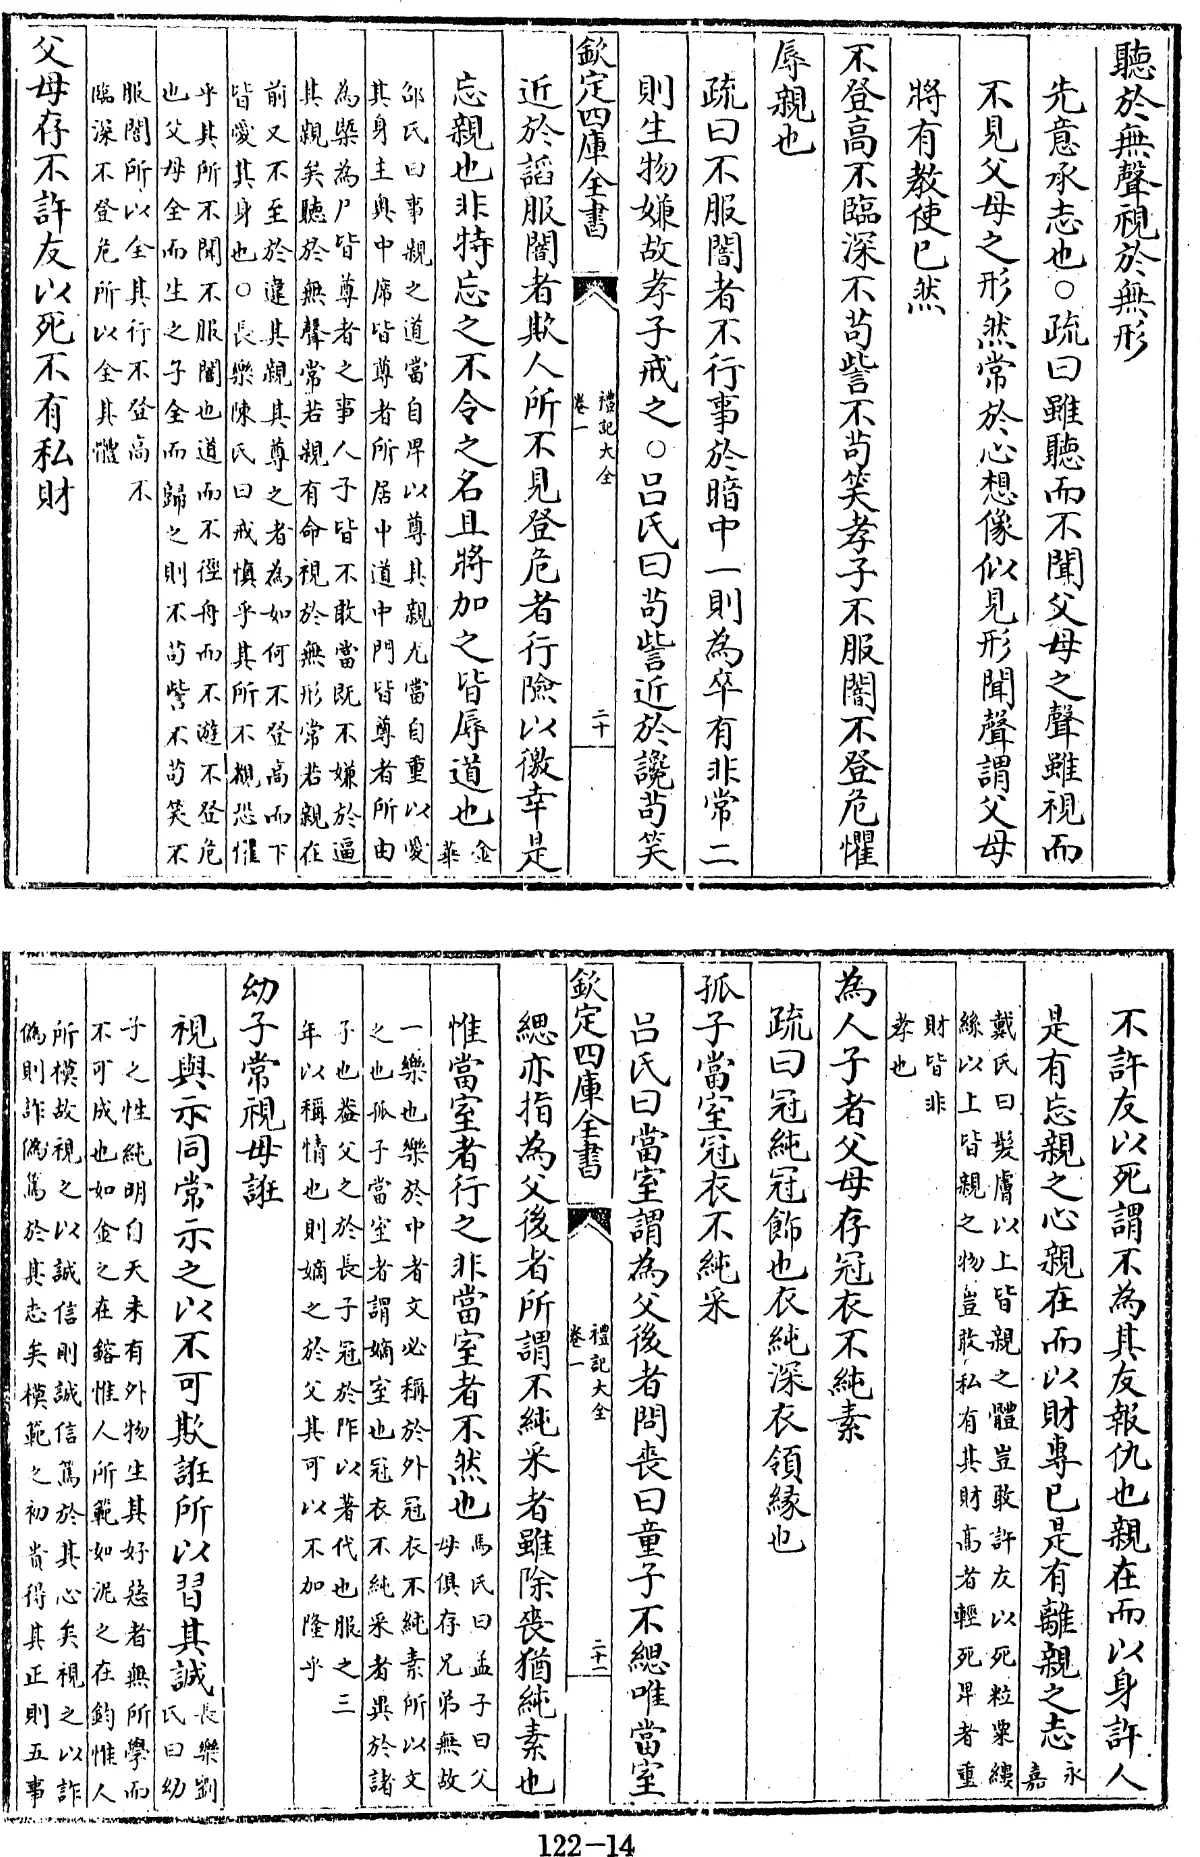 聽於無聲視於無形
先意承志也○疏曰雖聽而不聞父母之聲雖視而
不見父母之形然常於心想像似見形聞聲謂父母
將有教使已然
不登高不臨深不苟訾不苟笑孝子不服闇不登危懼
辱親也
疏曰不服闇者不行事於暗中一則為卒有非常二
則生物嫌故孝子戒之○呂氏曰苟訾近於讒苟笑
欽定四庫全書
禮記大全
卷一
二十
近於謟服闇者欺人所不見登危者行險以徼幸是
忘親也非特忘之不令之名且將加之皆辱道也
金
華
邵氏曰事親之道當自卑以尊其親尤當自重以愛
其身主奥中席皆尊者所居中道中門皆尊者所由
為槩為尸皆尊者之事人子皆不敢當既不嫌於逼
其親矣聽於無聲常若親有命視於無形常若親在
前又不至於違其親其尊之者為如何不登高而下
皆愛其身也○長樂陳氏曰戒慎乎其所不覩恐懼
乎其所不聞不服闇也道而不徑舟而不游不登危
也父母全而生之子全而歸之則不苟訾不苟笑不
服闇所以全其行不登高不
臨深不登危所以全其體
父母存不許友以死不有私財
不許友以死謂不為其友報仇也親在而以身許人
是有忘親之心親在而以財專已是有離親之志
永
嘉
戴氏曰髮膚以上皆親之體豈敢許友以死粒粟縷
絲以上皆親之物豈敢私有其財髙者輕死卑者重
財皆非
孝也
為人子者父母存冠衣不純素
疏曰冠純冠飾也衣純深衣領緣也
孤子當室冠衣不純采
呂氏曰當室謂為父後者問喪曰童子不緦唯當室
欽定四庫全書
禮記大全
卷一
二十一
緦亦指為父後者所謂不純采者雖除喪猶純素也
惟當室者行之非當室者不然也
馬氏曰孟子曰父
母俱存兄弟無故
一樂也樂於中者文必稱於外冠衣不純素所以文
之也孤子當室者謂嫡室也冠衣不純采者異於諸
子也葢父之於長子冠於阼以著代也服之三
年以稱情也則嫡之於父其可以不加隆乎
幼子常視毋誑
視與示同常示之以不可欺誑所以習其誠
長樂劉
氏曰幼
子之性純明自天未有外物生其好惡者無所學而
不可成也如金之在鎔惟人所範如泥之在鈞惟人
所模故視之以誠信則誠信篤於其心矣視之以詐
偽則詐偽篤於其志矣模範之初貴得其正則五事
122-14